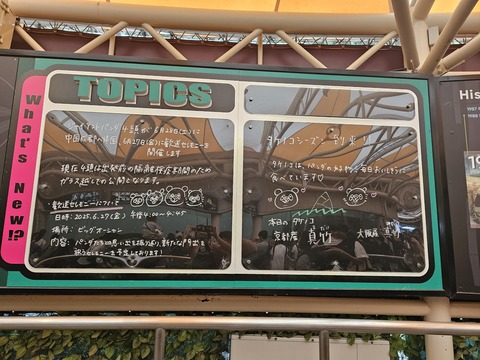 TOPICS
What's New!?
ジャイアントパンダ4頭が6月28日(土)に
中国成都へ帰国、6月27日(金)に歓送セレモニーを
開催します
現在4頭は出発前の隔離検疫期間のため
ガラス越しでの公開となります。
歓送セレモニーについて
日時:2025.6.27(金) 午後4:00〜4:45
場所:ビッグオーシャン
内容:パンダたちの思い出を振り返り、新たな門出を
祝うセレモニーを予定しております!
タケノコシーズン 到来!
タケノコは、パンダの
食べています♡
本日の タケノコ
京都産 真竹 大阪産
His
1987
1988
19